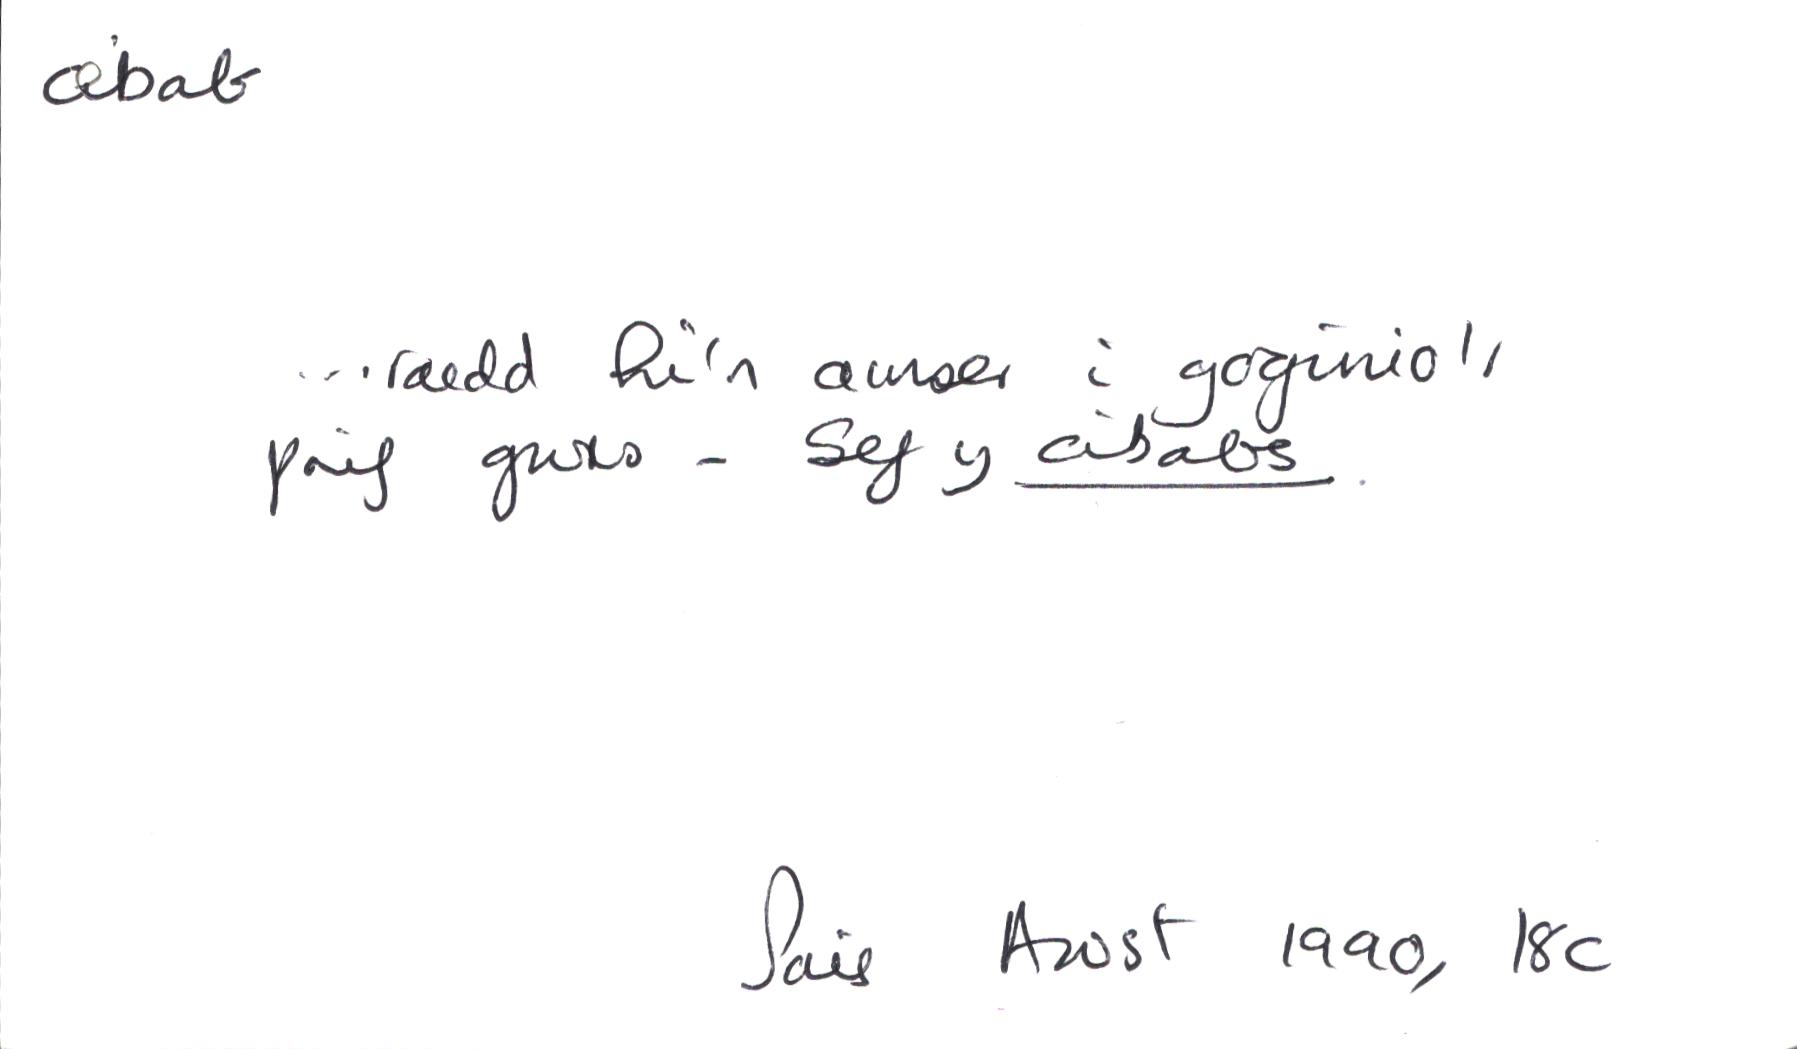 cebab
...roedd hi'n amser i goginio'r
prif gwrs - sef y cibabs.
Pais Awst 1990, 18c